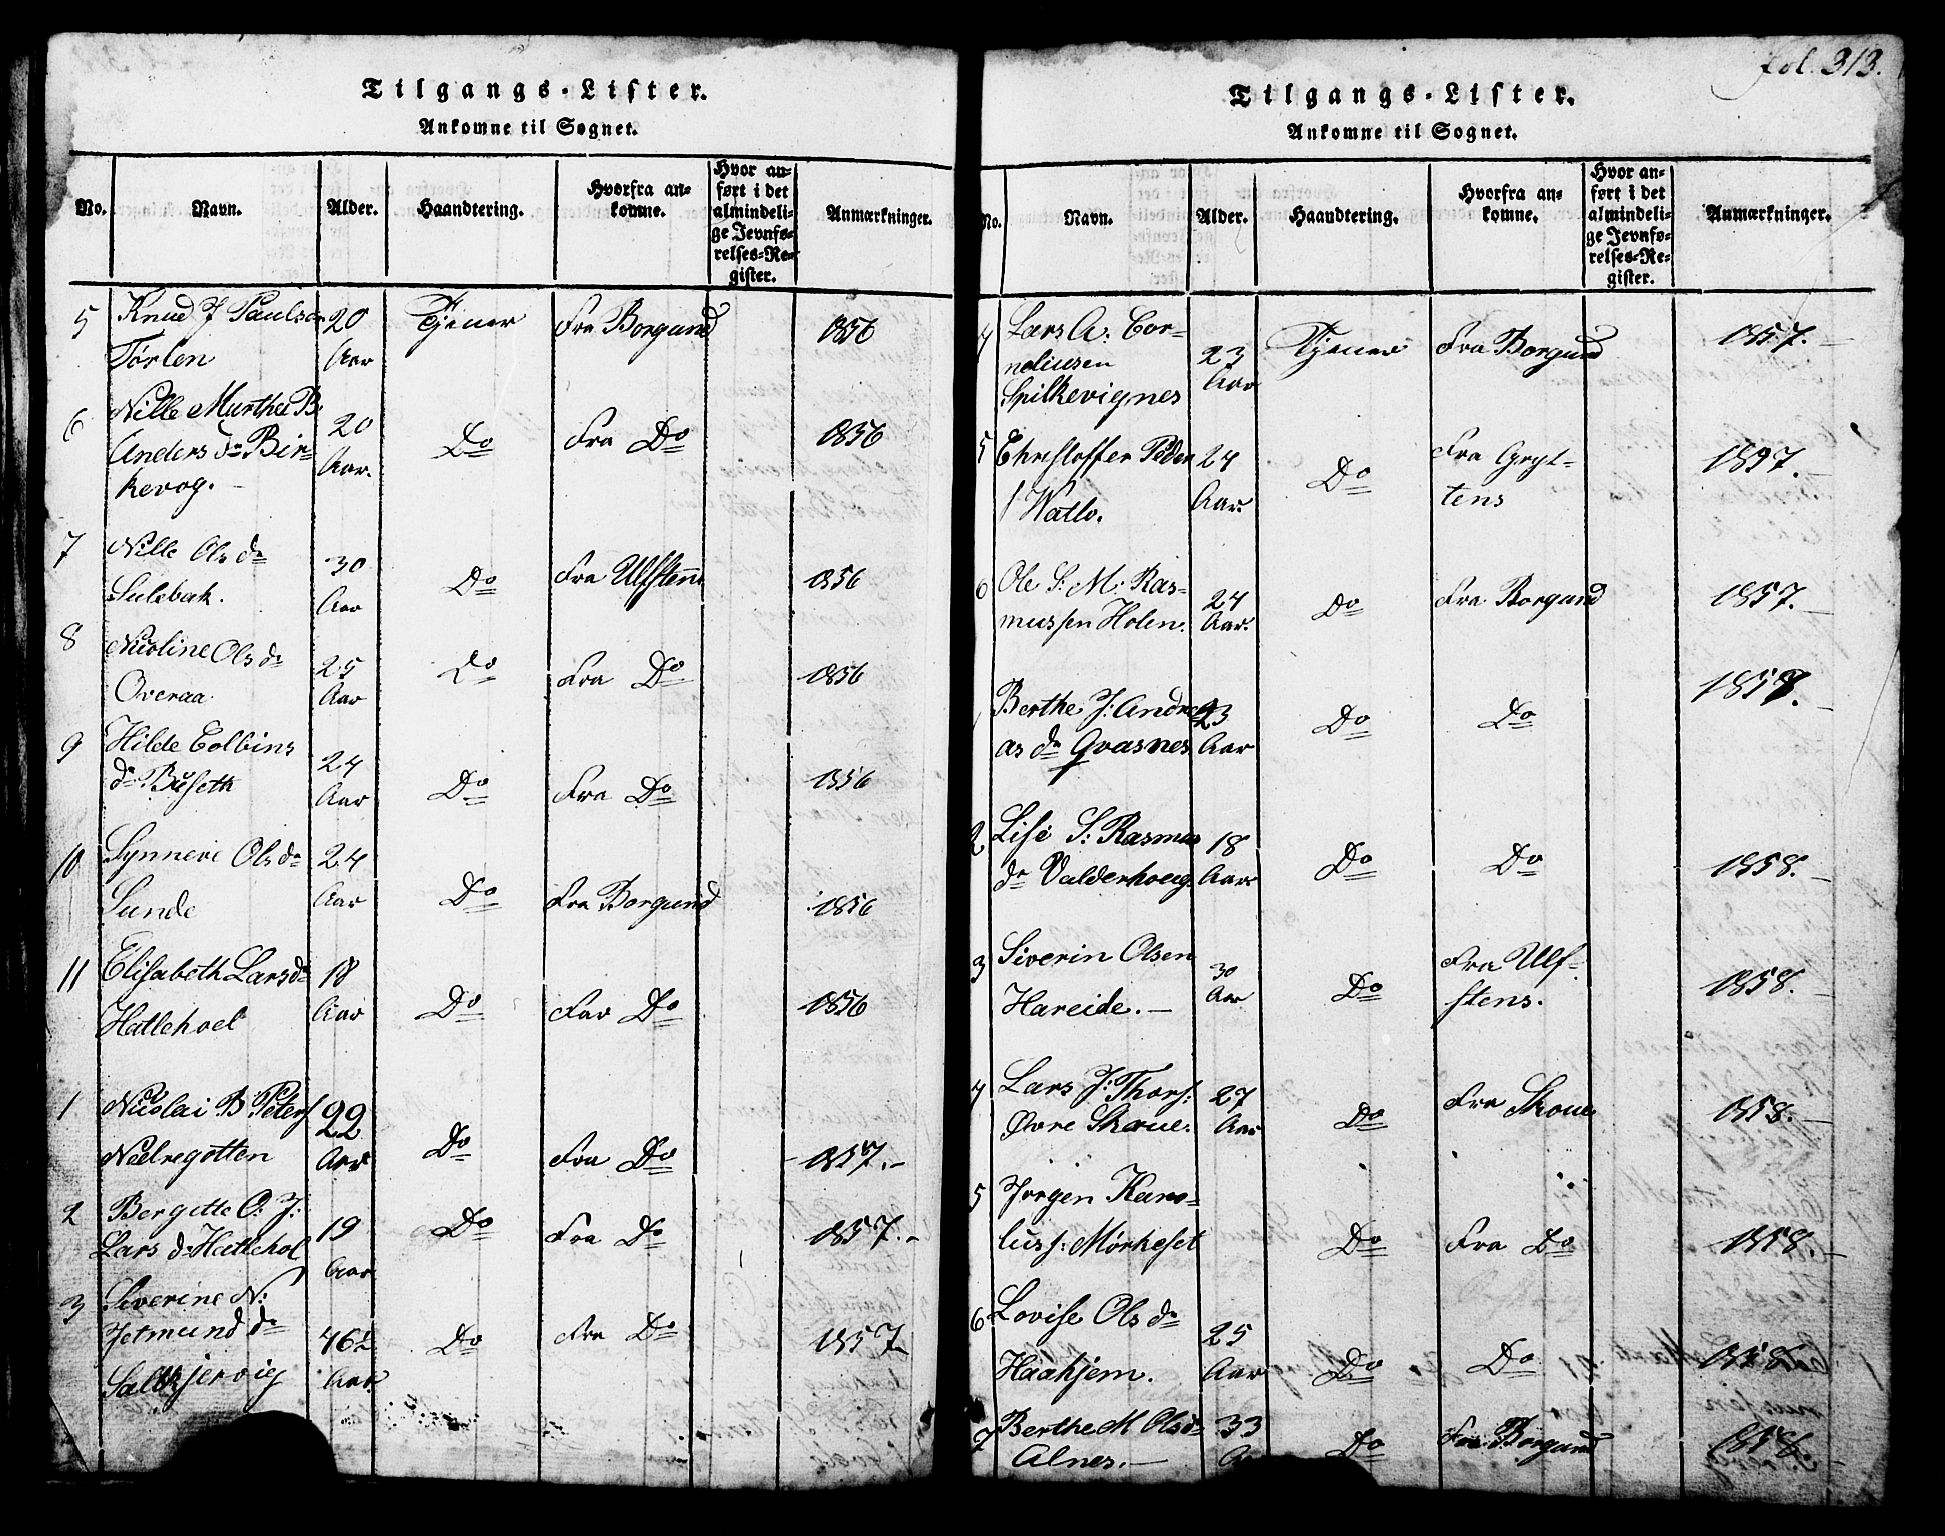 Tilgangs-Lister.
Ankomne til Sognet.
No. Navn. Alder. Haandtering. Hvorfra ankomne. Hvor anført i det almindelige Jevnførelses-Register. Anmærkninger.
5 Knud J Paulsen 20 Tjener Fra Borgund 1856
Tørlen Aar
6 Nille Marthe B. 20 Do Fra Do 1856
Anders Dr Bir= Aar.
kevog.
7 Nille Ols dr 30 Do Fra Ulfsten 1856
Sulebak. Aar
8 Nicoline Ols dr 25 Do Fra Do 1856
Overaa Aar
9 Hilde Colbins 24 Do Fra Do 1856
dr Buseth Aar
10 Synneve Ols dr 24 Do Fra Borgund 1856
Sunde Aar
11 Elisabeth Lars dr 18 Do Fra Do 1856
Hatlehoel Aar
1 Nicolai B Peters 22 Do Fra Do 1857.-
Nedregotten Aar
2 Bergitte O: J: 19 Do Fra Do 1857.-
Lars dr Hatlehol Aar
3 Severine N: Do Fra Do 1857
Jetmund dr 46½
Aar
fol. 313.
Tilgangs-Lister.
Ankomne til Sognet.
No. Navn. Alder. Haandtering. Hvorfra ankomne. Hvor anført i det almindelige Jevnførelses-Register. Anmærkninger.
4 Lars A: Cor= 23 Tjener Fra Borgund 1857.
neliusen Aar
Spilkevignes
5 Christoffer Peder 24 Do Fra Gryt= 1857.
s Watlo. Aar tens
6 Ole S. M: Ras= 24 Do Fra Borgund 1857.
mussen Holen. Aar.
Berthe J: Andre 23 Do Do 1858.
as dr Gvasnes Aar
2 Lise S: Rasmus 18 Do Do 1858.
dr Valderhoug Aar
3 Siverin Olsen 30 Do Fra Ulf= 1858.
Hareide. Aar stens.
4 Lars J: Thors: 27 Do Fra Skoue 1858.
Øvre Skoue. Aar
5 Jørgen Karo= Do Fra Do 1858.
lus s: Mørkeset
6 Lovise Ols dr 25 Do Do 1858.
Haahjem. Aar
7 Berthe M Ols dr 33 Do Fra Borgund 1858.
Alnes.